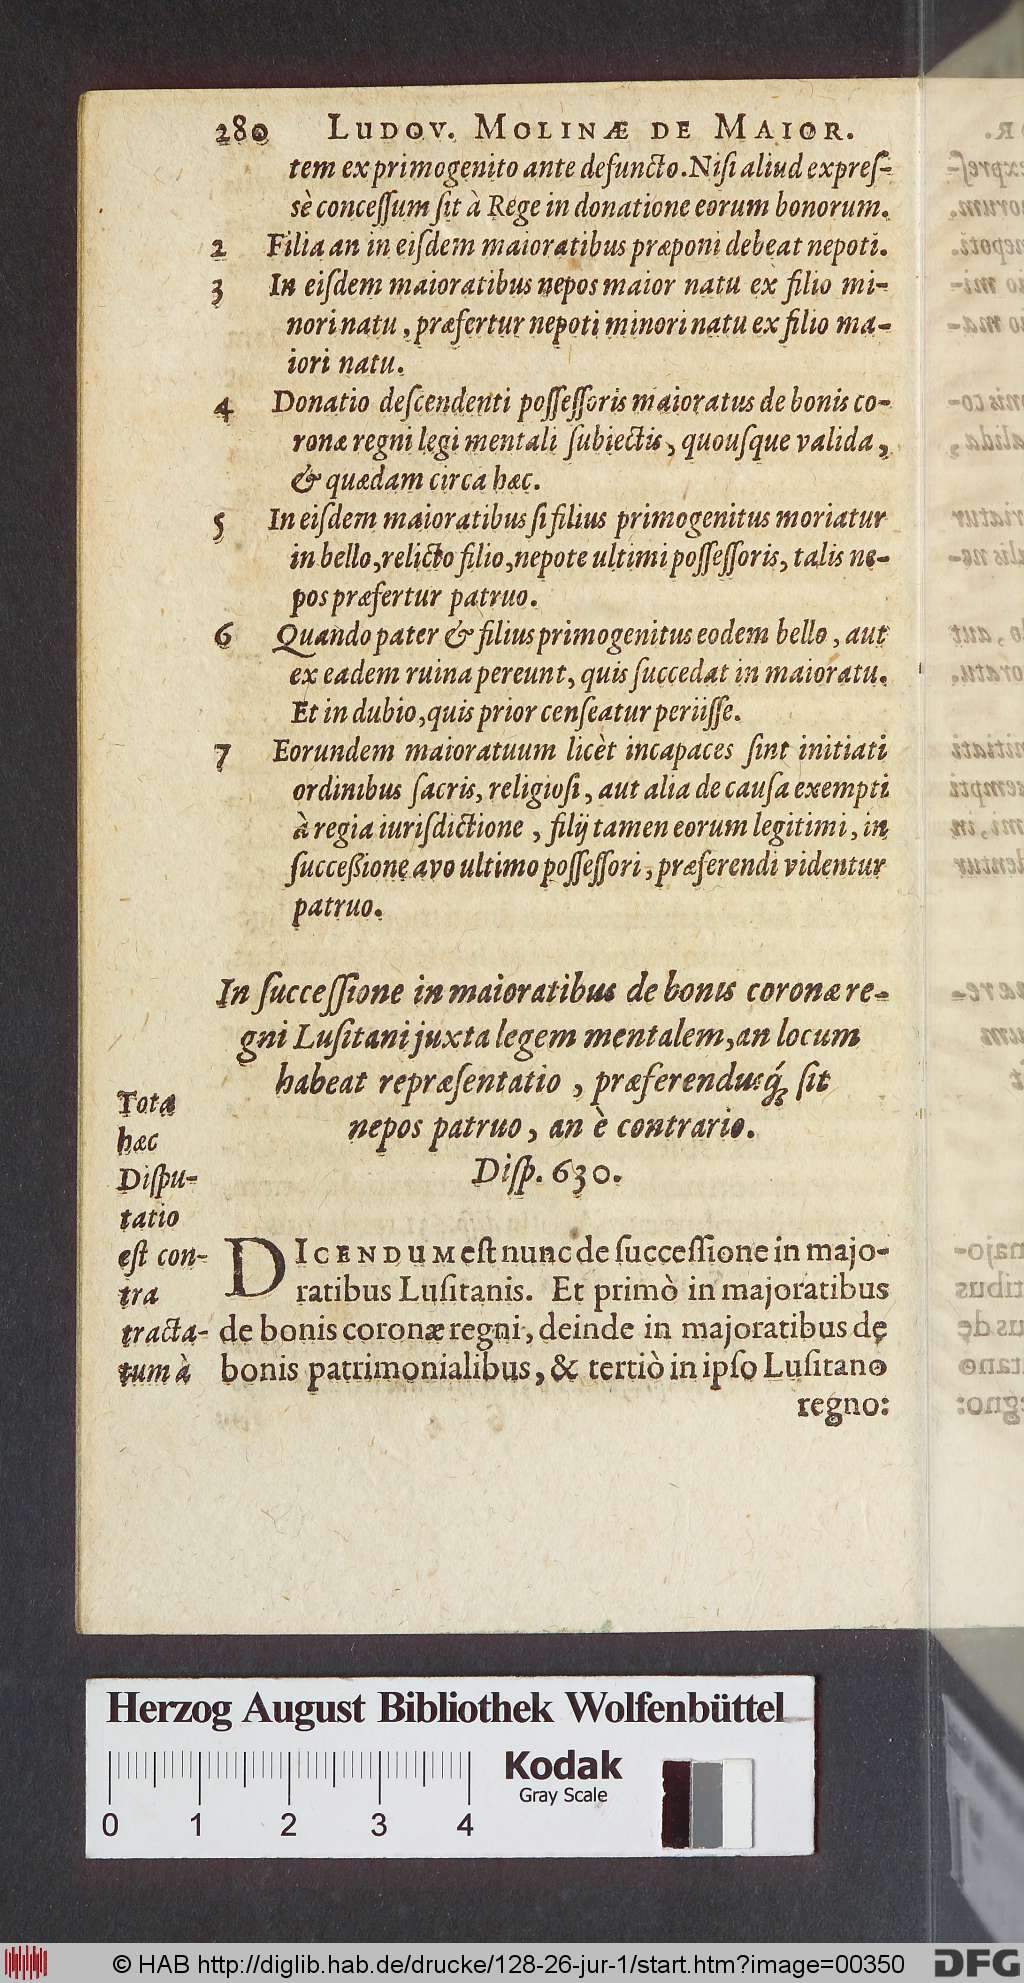 280 LUDOV. MOLINÆ DE MAIOR.
tem ex primogenito ante defuncto. Nisi aliud expreſ-
sè conceſſum ſit à Rege in donatione eorum bonorum.
2 Filia an in eiſdem maioratibus præponi debeat nepoti.
3 In eiſdem maioratibus nepos maior natu ex filio mi-
nori natu, præfertur nepoti minori natu ex filio ma-
iori natu.
4 Donatio deſcendenti poſſeſſoris maioratus de bonis co-
ronæ regni legi mentali ſubiectis, quouſque valida,
& quædam circa hæc.
5 In eiſdem maioratibus ſi filius primogenitus moriatur
in bello, relicto filio, nepote ultimi poſſeſſoris, talis ne-
pos præfertur patruo.
6 Quando pater & filius primogenitus eodem bello, aut
ex eadem ruina pereunt, quis ſuccedat in maioratu.
Et in dubio, quis prior cenſeatur periiſſe.
7 Eorundem maioratuum licèt incapaces ſint initiati
ordinibus ſacris, religioſi, aut alia de cauſa exempti
à regia iuriſdictione, filij tamen eorum legitimi, in
ſucceßione avo ultimo poſſeſſori, præferendi videntur
patruo.
In ſucceſſione in maioratibus de bonis coronæ re-
gni Luſitani juxta legem mentalem, an locum
habeat repræſentatio, præferenduſq́; ſit
nepos patruo, an è contrario.
Diſp. 630.
Tota
hæc
Diſpu-
tatio
eſt con-
tra
tracta-
tum à
DICENDUM eſt nunc de ſucceſſione in majo-
ratibus Luſitanis. Et primò in majoratibus
de bonis coronæ regni, deinde in majoratibus de
bonis patrimonialibus, & tertiò in ipſo Luſitano
regno:
Herzog August Bibliothek Wolfenbüttel
Kodak
Gray Scale
0 1 2 3 4
© HAB http://diglib.hab.de/drucke/128-26-jur-1/start.htm?image=00350
DFG